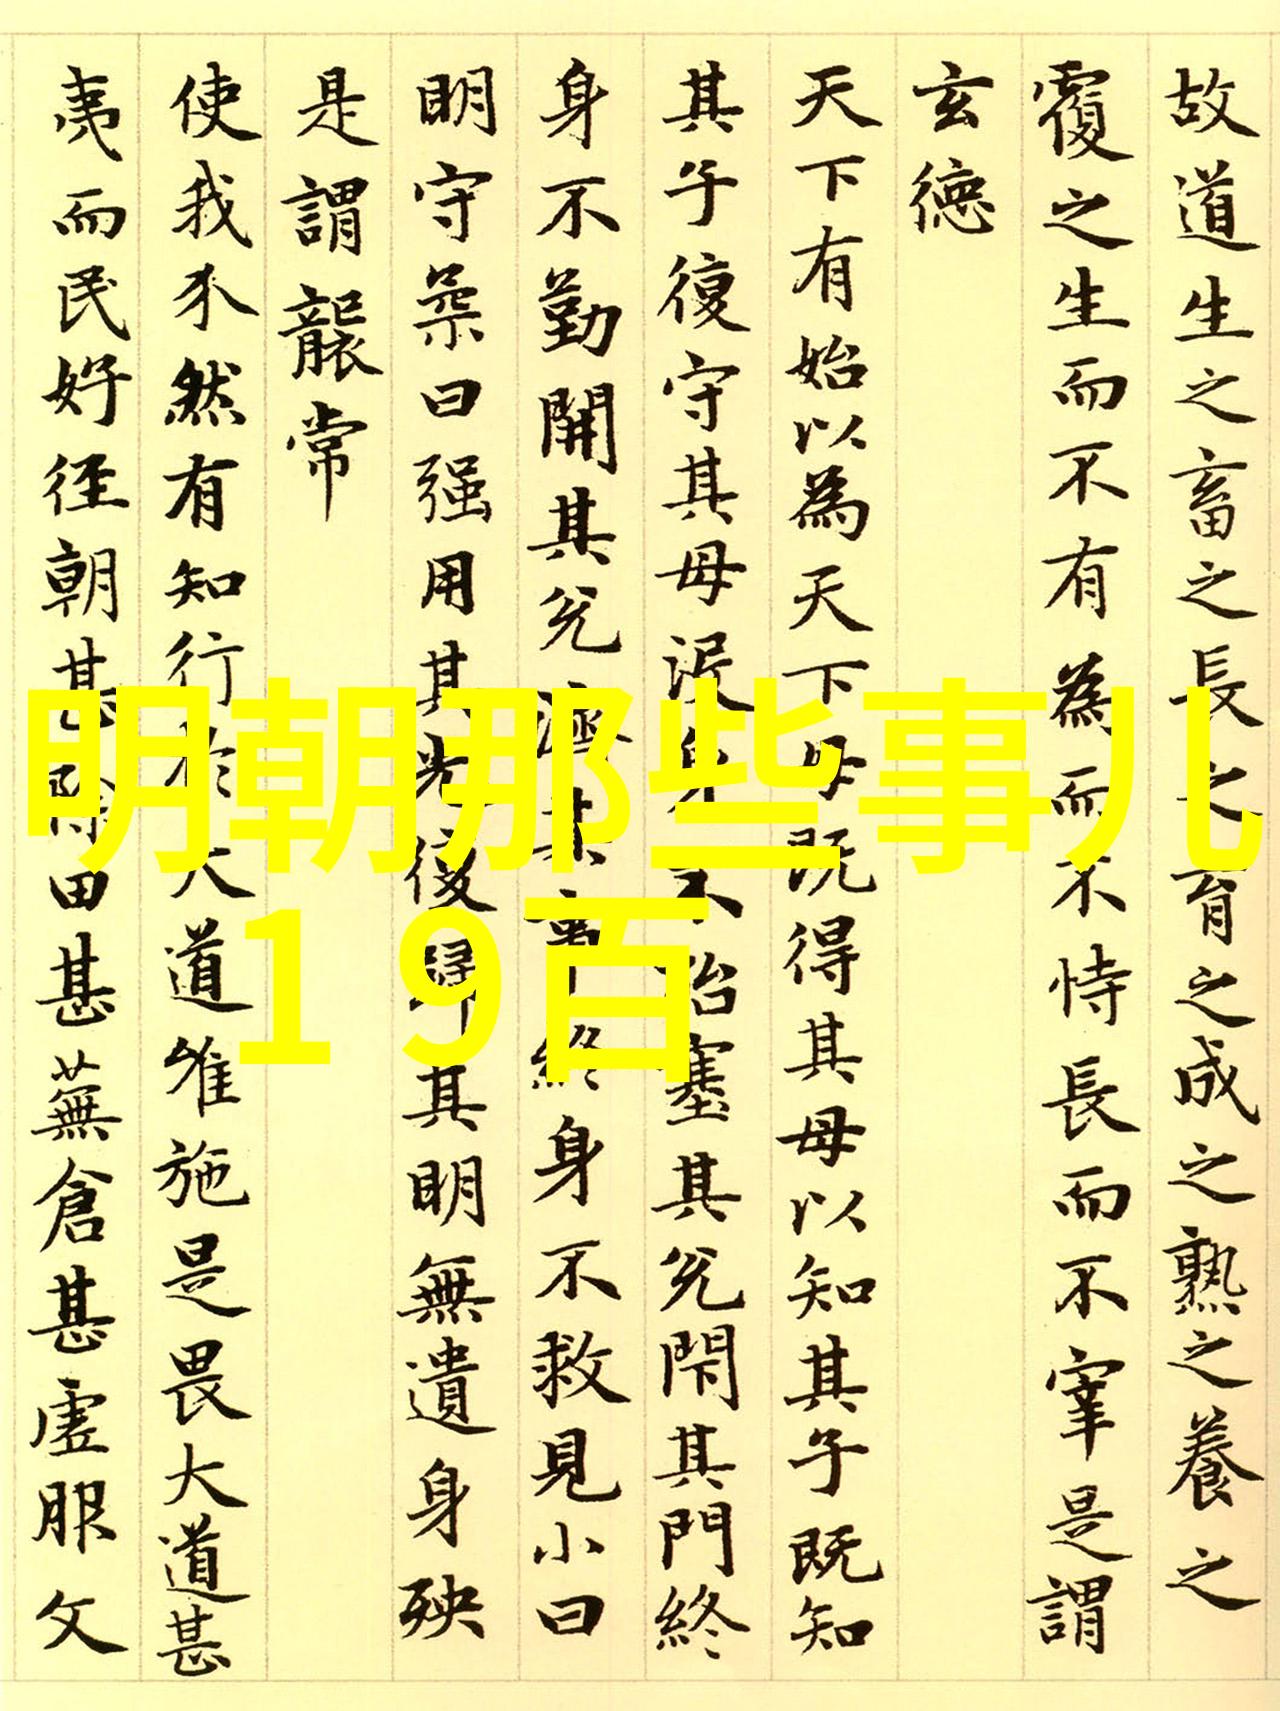 故道生之畜之長之育之成之熟之養之
覆之生而不有為而不恃長而不宰是謂
玄德
天下有始以為天下母既得其母以知其子既知
其子復守其母没身不殆塞其兑閇其門終
身不勤開其兑濟其事終身不救見小曰
明守柔曰强用其光復歸其明無遺身殃
是謂襲常
使我介然有知行於大道唯施是畏大道甚
夷而民好径朝甚除田甚蕪倉甚虚服文
明朝那些事儿
19百